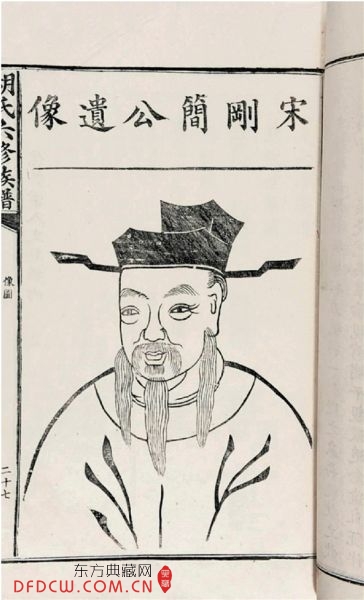 宋剛簡公遺像
胡氏六修族譜
像圖
二十七
东方典藏网
DFDCW.COM.CN